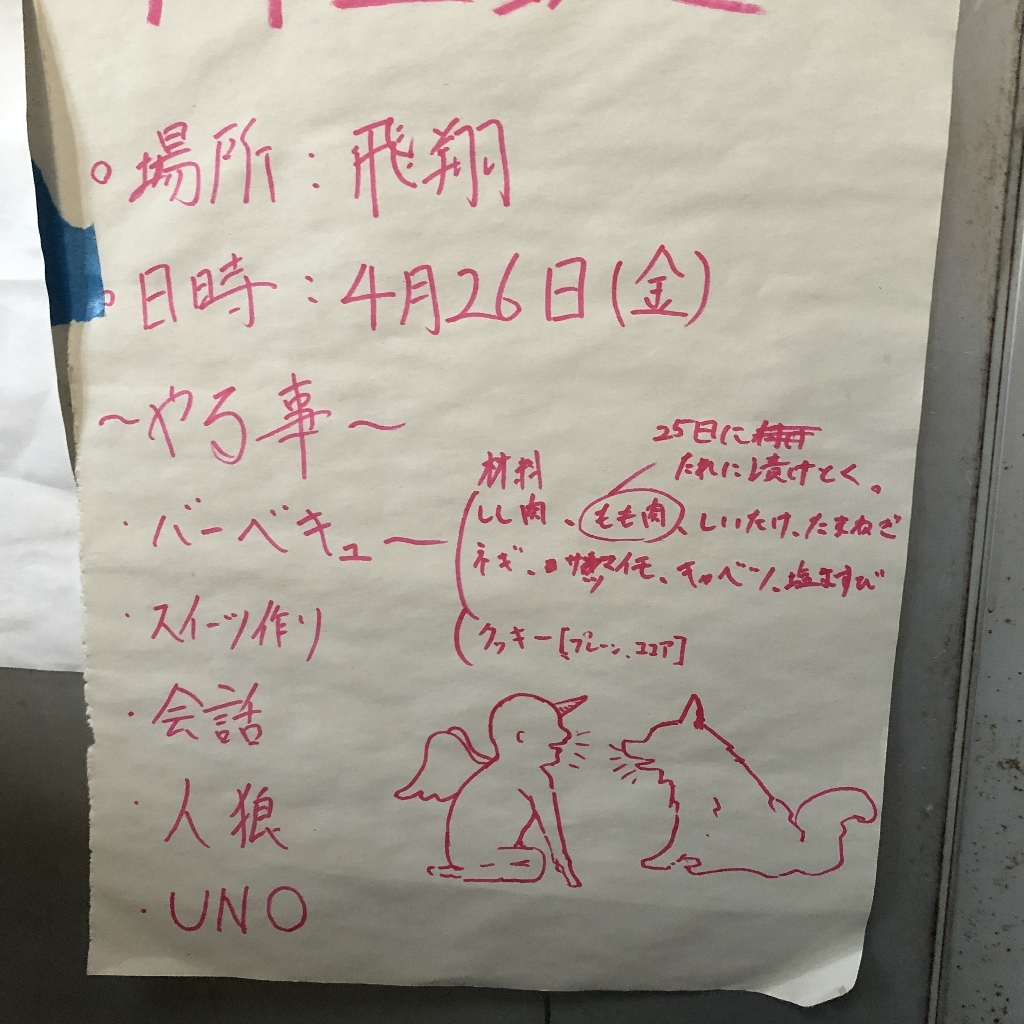 ○場所：飛翔
○日時：4月26日(金)
〜やる事〜
25日に
たれに漬けとく。
材料
・バーベキュー
しし肉、もも肉、しいたけ、たまねぎ
ネギ、サツマイモ、キャベツ、塩ますび
・スイーツ作り
クッキー[プレーン、ココア]
・会話
・人狼
・UNO